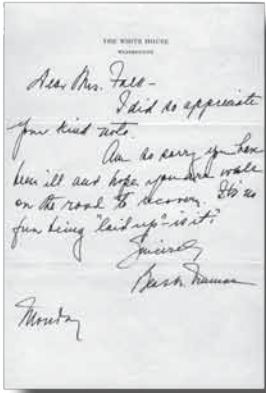 THE WHITE HOUSE
WASHINGTON
Dear Mrs. Falk -
I did so appreciate
your kind note.
Am so sorry you have
been ill and hope you are well
on the road to recovery. It's no
fun being "laid up" - is it?
Sincerely
Bess W. Truman
Monday